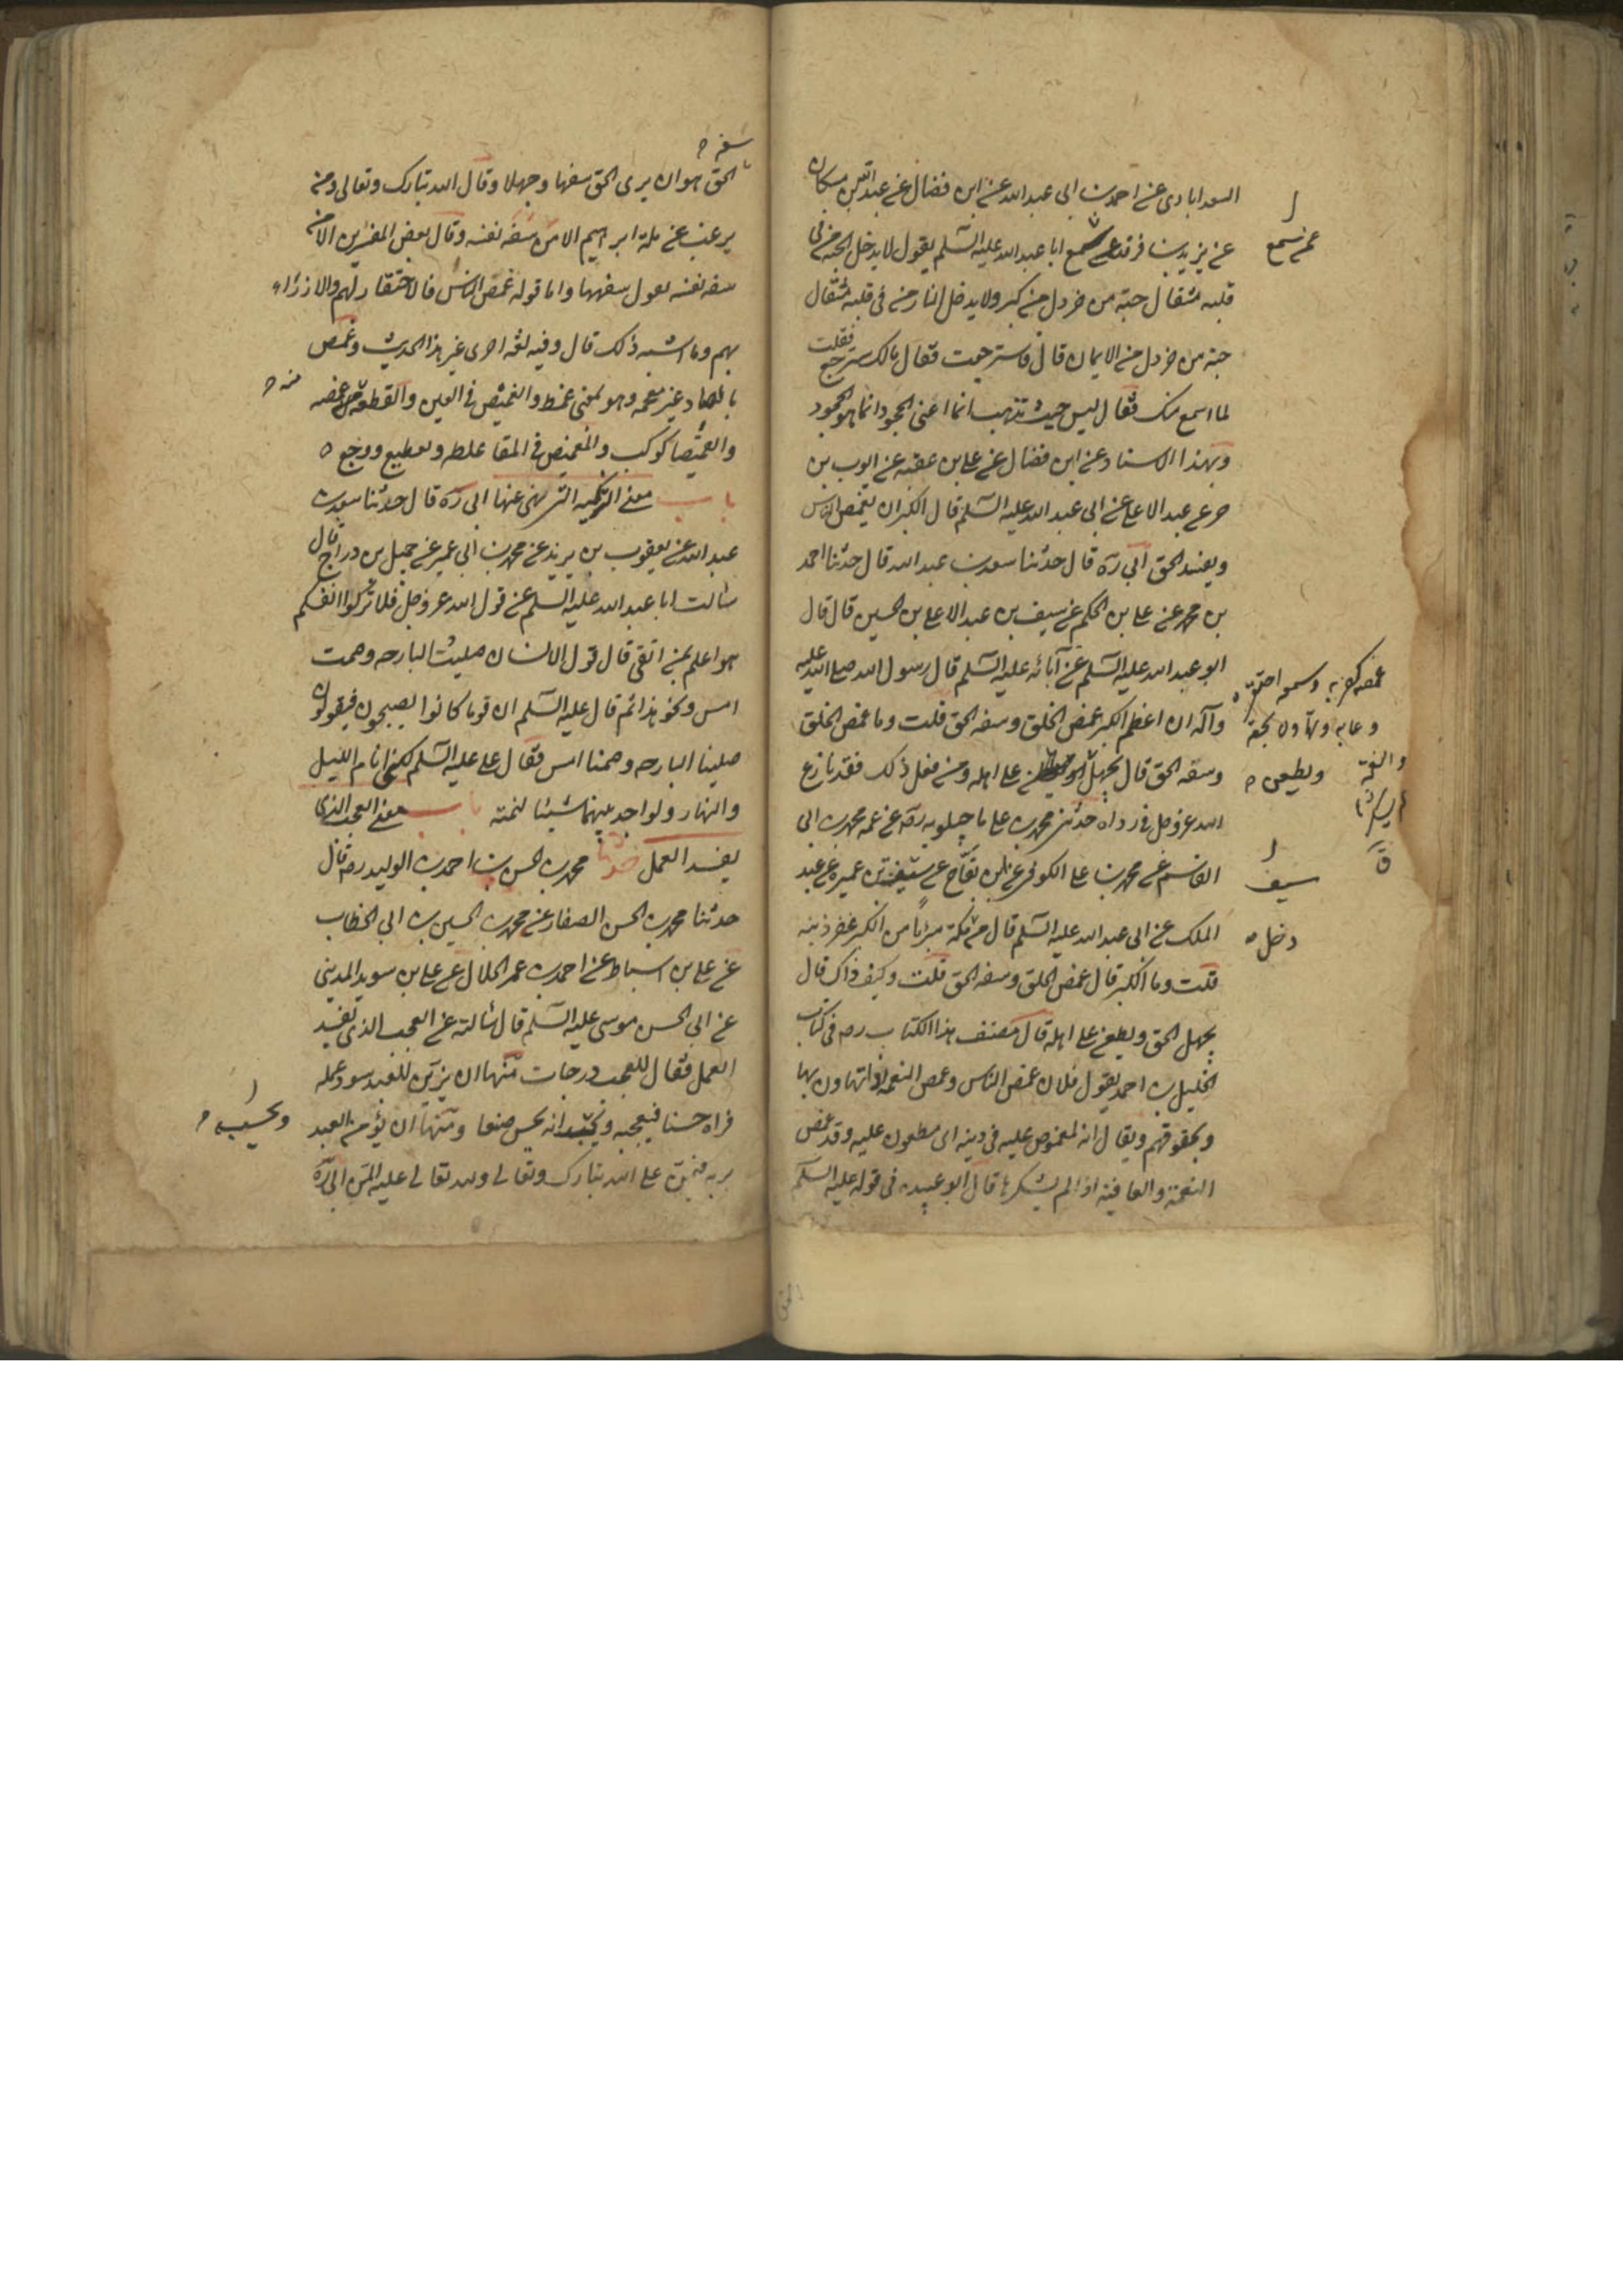 السعدابادى عن احمد بن ابى عبد الله عن ابن فضال عن عبد الله بن مسكان
عن يزيد بن فرقد عمن سمع ابا عبد الله عليه السلم يقول لا يدخل الجنة من فى
قلبه مثقال حبة من خردل من كبر ولا يدخل النار من فى قلبه مثقال
حبة من خردل من الايمان قال فاسترجعت فقال مالك تسترجع فقلت
لما اسمع منك فقال ليس حيث تذهب انما اعنى الجحود انما هو الجحود
وبهذا الاسناد عن ابن فضال عن على بن عقبه عن ايوب بن
حر عن عبد الاعلى عن ابى عبد الله عليه السلم قال الكبر ان يغمص الناس
ويسفه الحق ابى ره قال حدثنا سعد بن عبد الله قال حدثنا احمد
بن محمد عن على بن الحكم عن سيف بن عبد الاعلى بن الحسين قال قال
ابو عبد الله عليه السلم عن آبائه عليه السلم قال رسول الله صلى الله عليه
وآله ان اعظم الكبر غمص الخلق وسفه الحق قلت وما غمص الخلق
وسفه الحق قال يجهل الحق ويطعن على اهله ومن فعل ذلك فقد نازع
الله عز وجل فى رداه حدثنى محمد بن على ماجيلويه ره عن عمه محمد بن ابى
القاسم عن محمد بن على الكوفى عن ابن بقاح عن سيف بن عميره عن عبد
الملك عن ابى عبد الله عليه السلم قال من مكة مبرئا من الكبر غفر ذنبه
قلت وما الكبر قال غمص الخلق وسفه الحق قلت وكيف ذاك قال
يجهل الحق ويطعن على اهله قال مصنف هذا الكتاب ره فى كتاب
الخليل بن احمد يقول فلان غمص الناس وغمص النعمه اذا تهاون بها
وبحقوقهم ويقال انه لمغموص عليه فى دينه اى مطعون عليه وقد غمص
النعمة والعافية اذا لم يشكرها قال ابو عبيده فى قوله عليه السلم
عمن سمع
سيف
دخل
سفه
الحق هو ان يرى الحق سفها وجهلا وقال الله تبارك وتعالى ومن
يرغب عن ملة ابرهيم الا من سفه نفسه وقال بعض المفسرين الا من
سفه نفسه يقول سفهها واما قوله غمص الناس فالاحتقار لهم والازراء
بهم وما اشبه ذلك قال وفيه لغه اخرى غير هذا الحديث وغمص
بالصاد غير معجمه وهو بمعنى غمط والغميص فى العين والقطعة من غمصه
والغميصا كوكب والمغميص فى المعا غلظه وتقطيع ووجع
باب معنى التزكيه التى نهى عنها ابى ره قال حدثنا سعد بن
عبد الله عن يعقوب بن يزيد عن محمد بن ابى عمير عن جميل بن دراج قال
سالت ابا عبد الله عليه السلم عن قول الله عز وجل فلا تزكوا انفسكم
هو اعلم بمن اتقى قال قول الانسان صليت البارحه وصمت
امس ونحو هذا ثم قال عليه السلم ان قوما كانوا يصبحون فيقولون
صلينا البارحه وصمنا امس فقال على عليه السلم لكنى انام الليل
والنهار ولو اجد بينهما شيئا لنمته باب معنى العجب الذى
يفسد العمل حدثنا محمد بن الحسن بن احمد بن الوليد ره قال
حدثنا محمد بن الحسن الصفار عن محمد بن الحسين بن ابى الخطاب
عن على بن اسباط عن احمد بن عمر الحلال عن على بن سويد المدينى
عن ابى الحسن موسى عليه السلم قال سالته عن العجب الذى يفسد
العمل فقال للعجب درجات منها ان يزين للعبد سوء عمله
فراه حسنا فيعجبه ويحسب انه يحسن صنعا ومنها ان يؤمن العبد
بربه فيمن على الله تبارك وتعالى ولله تعالى عليه المن ابى ره
منه
ويحسب